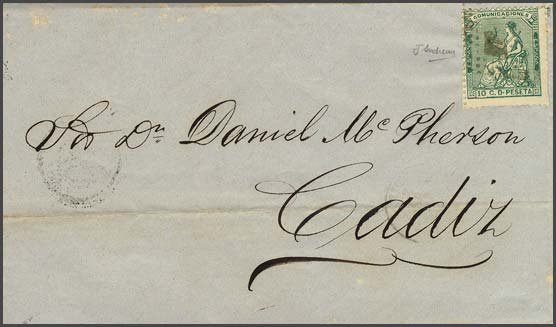 COMUNICACIONES
10 C. D. PESETA
Sor Dn Daniel Mc Pherson
Cadiz